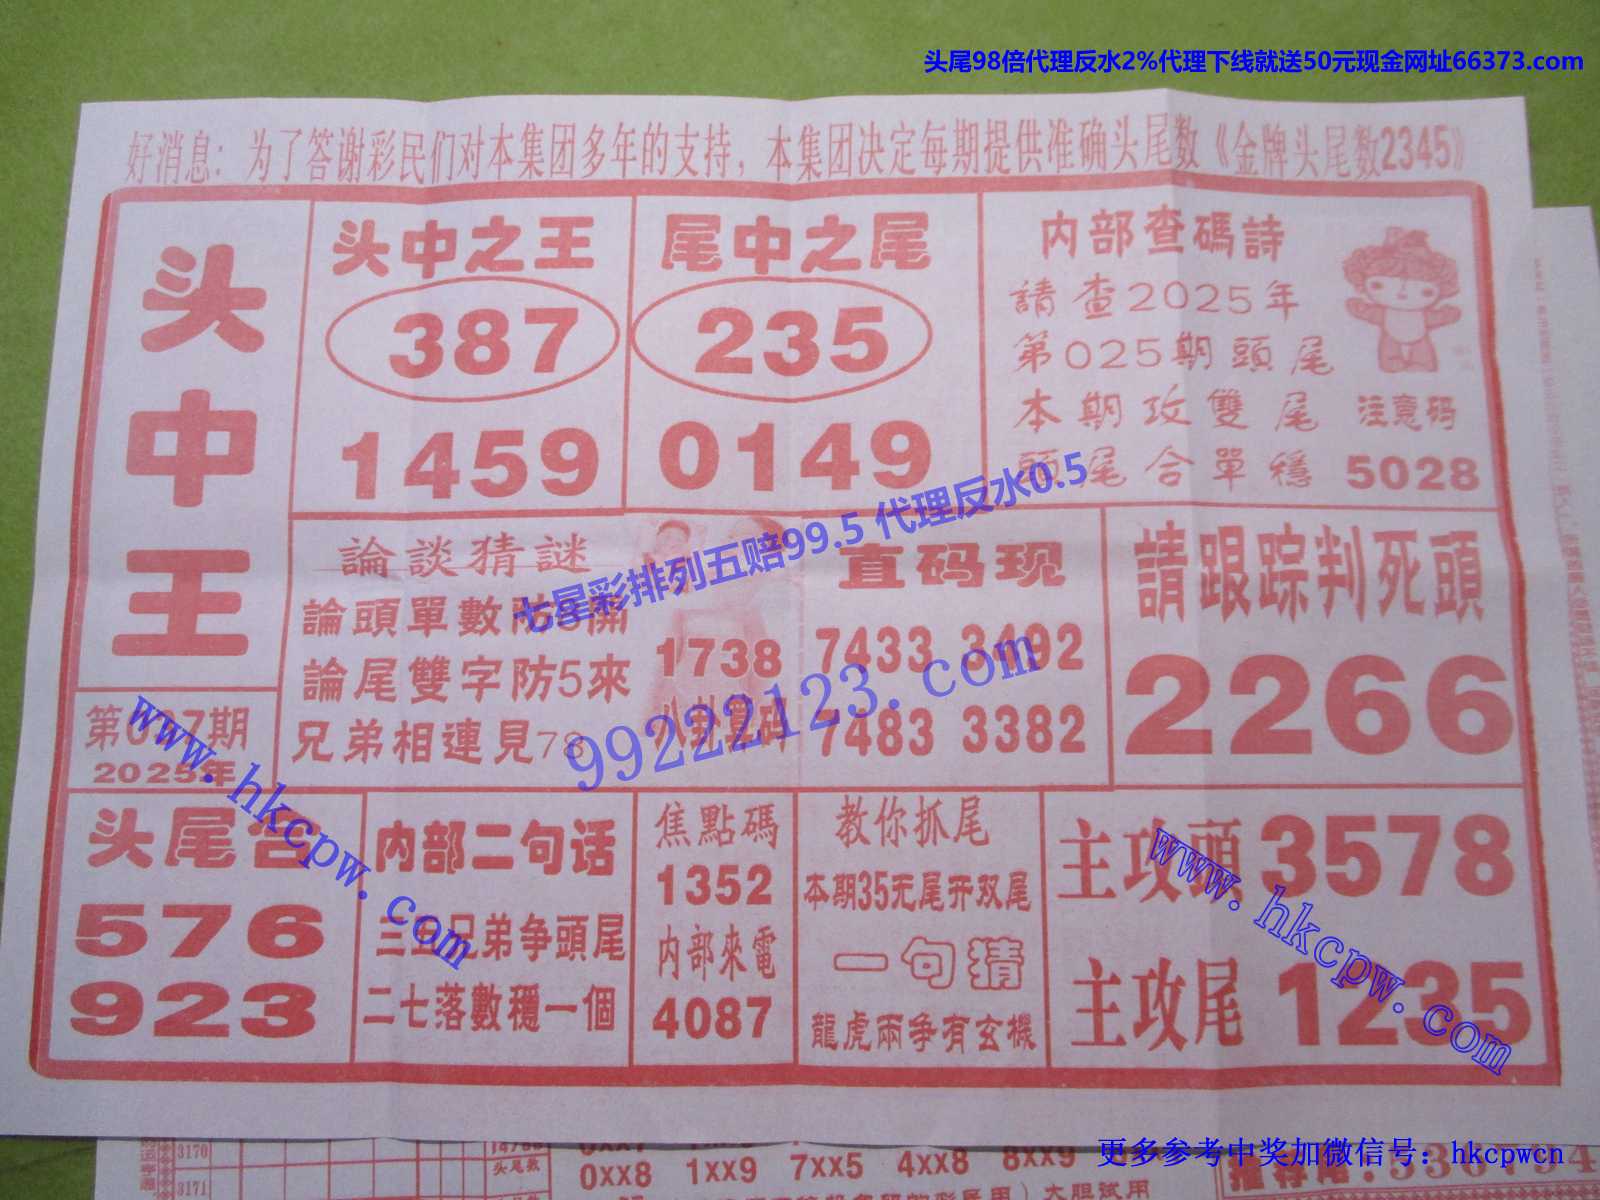 头尾98倍代理反水2%代理下线就送50元现金网址66373.com
好消息：为了答谢彩民们对本集团多年的支持，本集团决定每期提供准确头尾数《金牌头尾数2345》
头中王
第037期
2025年
头中之王
387
1459
尾中之尾
235
0149
内部查碼詩
請查2025年
第025期頭尾
本期攻雙尾
頭尾合單穩
注意码
5028
論談猜謎
論頭單數防8開
論尾雙字防5來
兄弟相連見78
1738
八卦算码
直码现
7433 3492
7483 3382
請跟踪判死頭
2266
七星彩排列五赔99.5 代理反水0.5
99222123.com
www.hkcpw.com
头尾合
576
923
内部二句话
三五兄弟争頭尾
二七落數穩一個
焦點碼
1352
内部來電
4087
教你抓尾
本期35无尾开双尾
一句猜
龍虎兩争有玄機
主攻頭 3578
主攻尾 1235
www.hkcpw.com
3170
3171
头尾数
0xx8 1xx9 7xx5 4xx8 8xx9
大胆试用
更多参考中奖加微信号：hkcpwcn